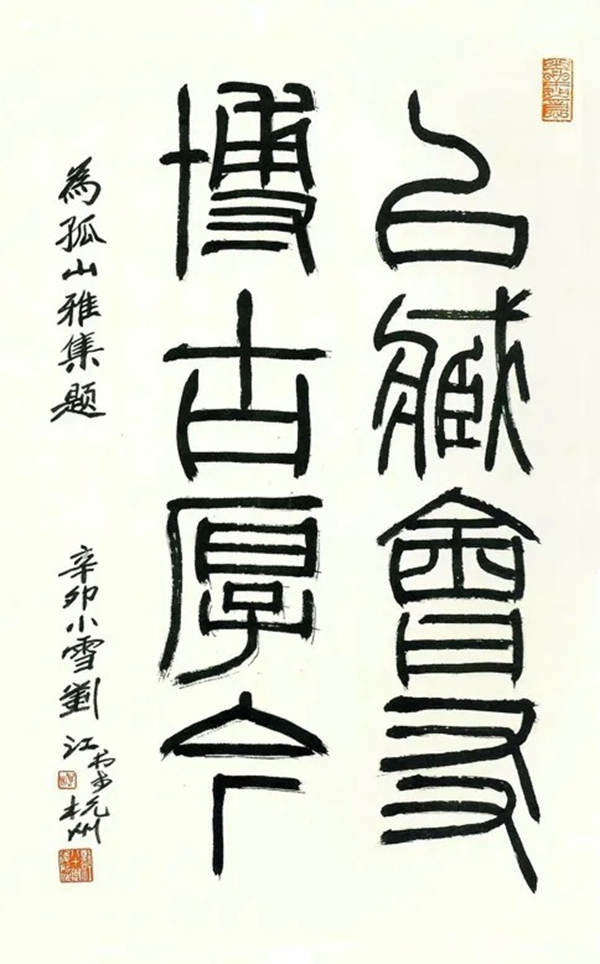 以臧會友
博古厚今
為孤山雅集題
辛卯小雪劉江书于杭州